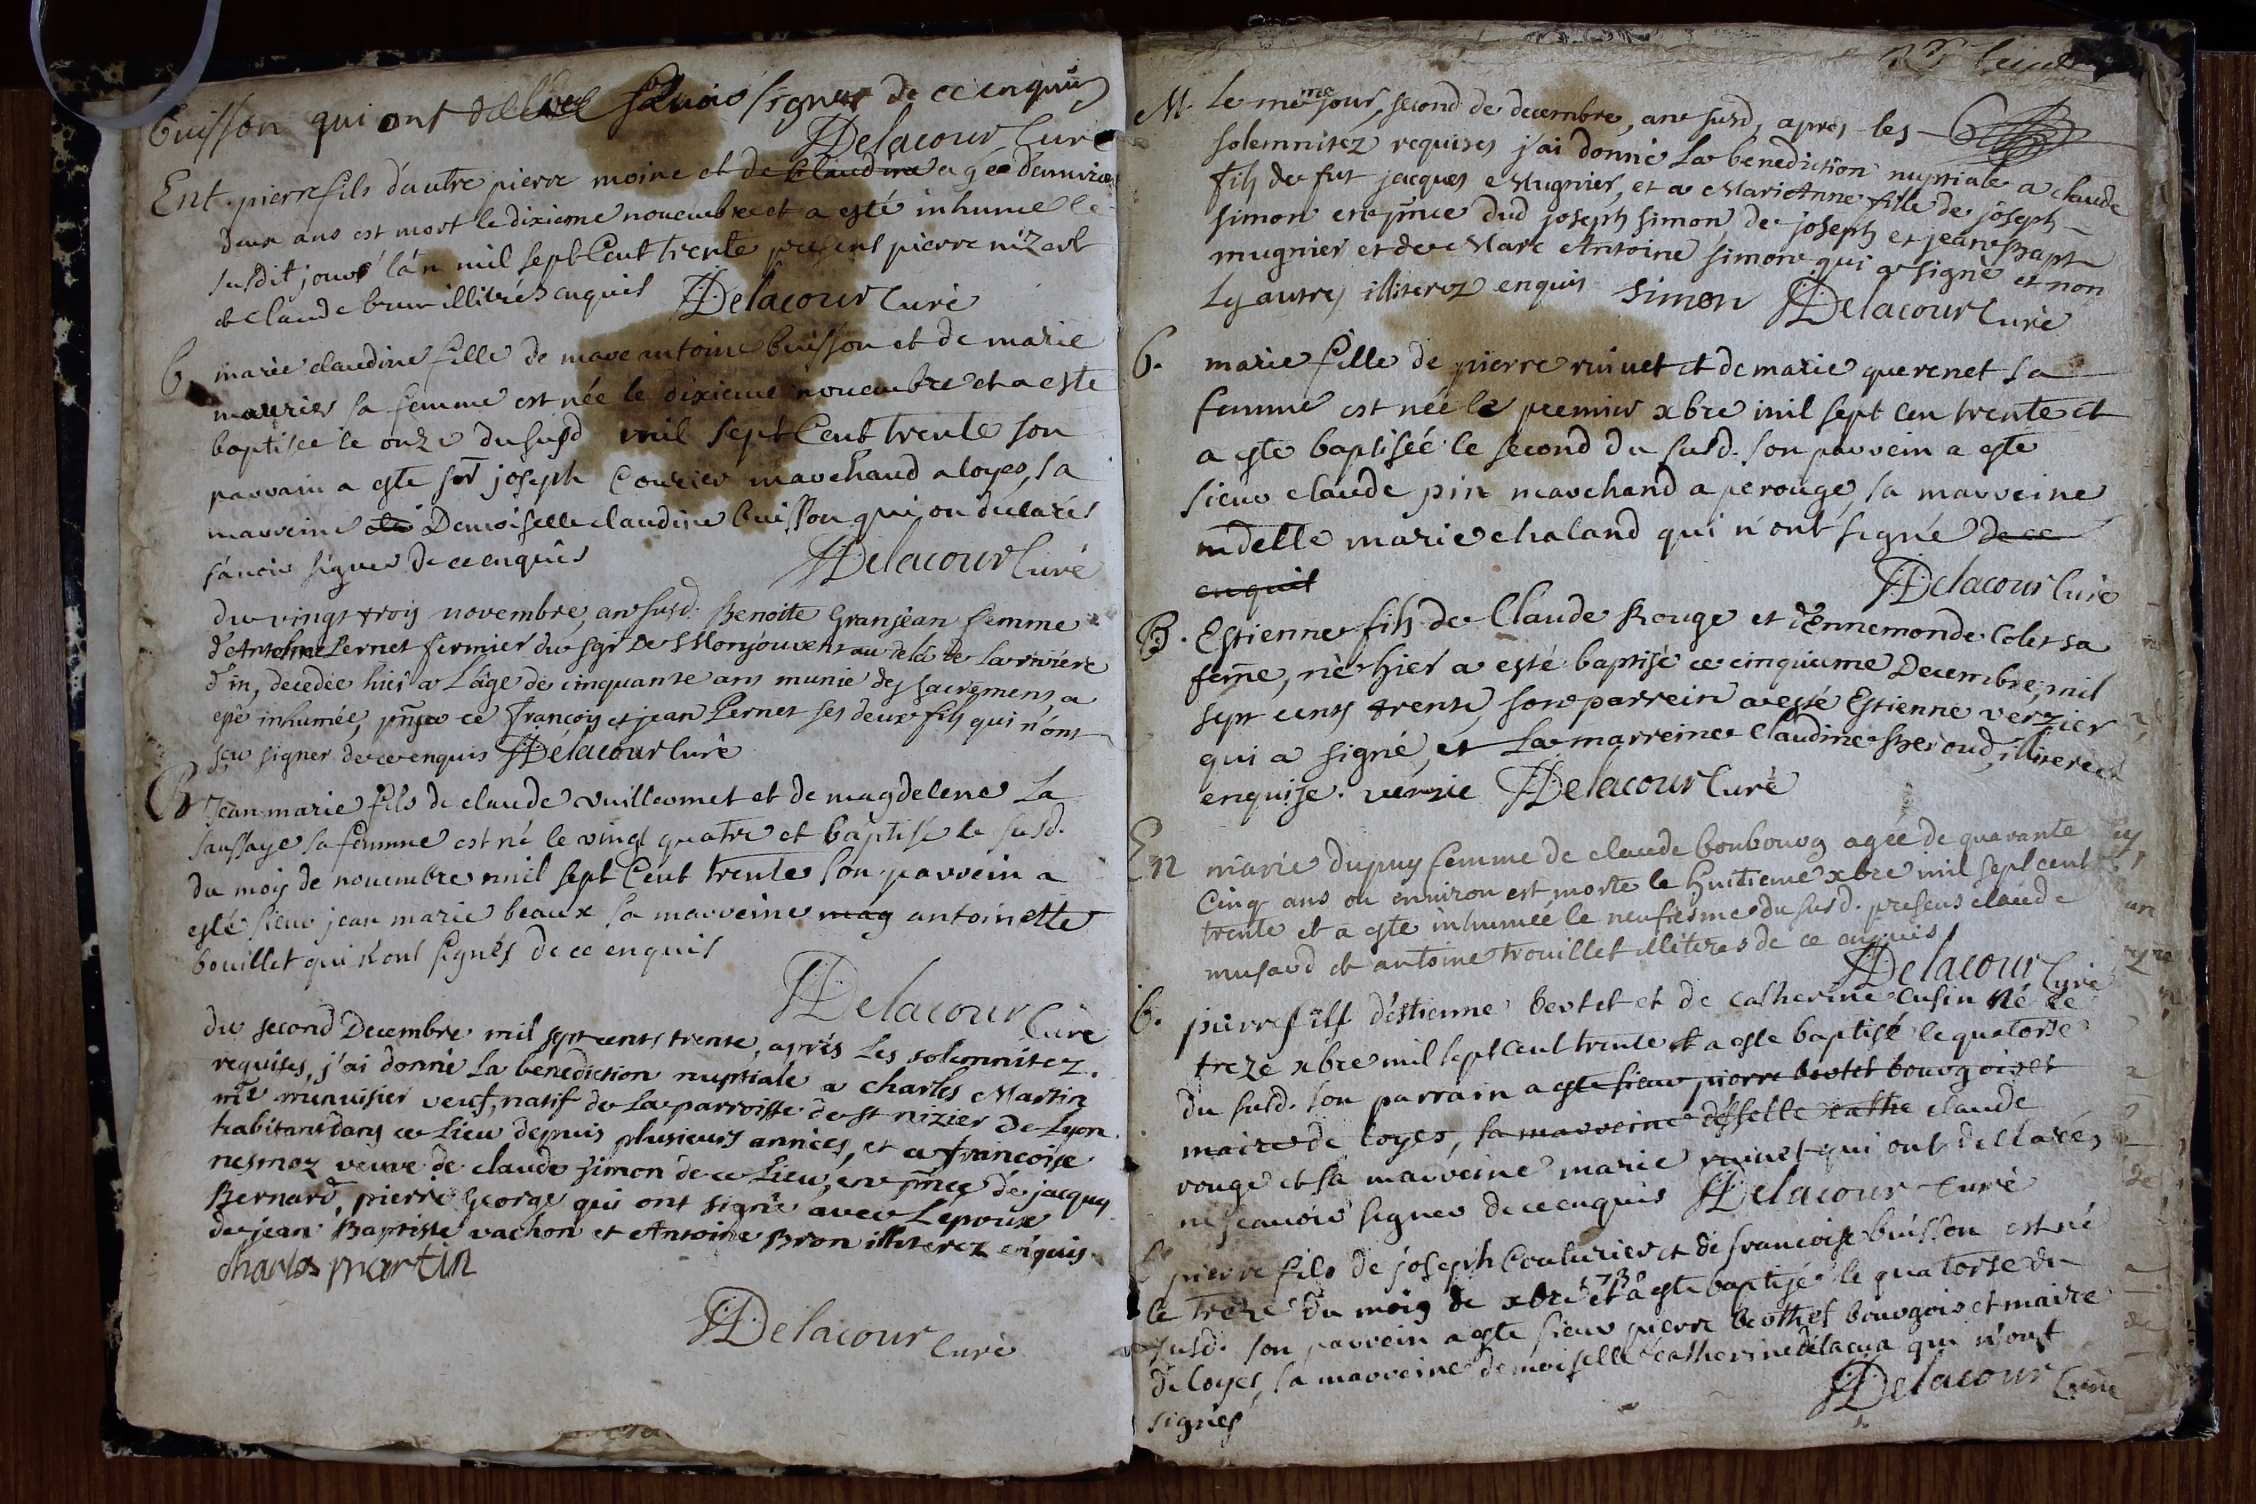 buisson qui ont declaré sçavoir signer de ce enquis
Delacour Curé
Ent. pierre fils d'autre pierre moine et de Claudine agée d'environ
deux ans est mort le dixieme novembre et a esté inhumé le
susdit jour l'an mil sept Cent trente present pierre nizart
et claude brun illitrés enquis Delacour Curé
b. marie claudine fille de marc antoine buisson et de marie
mauries sa femme est née le dixieme novembre et a este
baptisée le onze du susd mil sept Cent trente son
parrain a este sr joseph Courier marchand a loyes, sa
marreine Demoiselle claudine buisson qui on déclarés
sçavoir signer de ce enquis
Delacour Curé
du vingt trois novembre, an susd. Benoite Granjean femme
d'Antoine Pernet fermier du sgr De Monjouvent au dela de la riviere
d'in, decedée hier a l'âge de cinquante ans munie des sacremens, a
esté inhumée, pnse ce françois et jean Pernet ses deux fils qui n'ont
sçu signer de ce enquis Delacour Curé
B Jean marie fils de claude vuilleomet et de magdelene La
saussaye sa femme est né le vingt quatre et baptisé le susd.
du mois de novembre mil sept Cent trente son parrein a
esté sieur jean marie beaux sa marreine mag antoinette
bouillet qui n'ont signés de ce enquis
Delacour Curé
du second Decembre mil sept cents trente, après les solemnitez
requises, j'ai donné la benediction nuptiale a charles Martin
mtre menuisier veuf, natif de la parroisse de st nizier de Lyon
habitant dans ce lieu depuis plusieurs années, et a françoise
nesmoz veuve de claude simon de ce lieu, en pnce de jacques
Bernard, pierre George qui ont signé avec l'epoux
de jean Baptiste vachon et Antoine Bron illiterez enquis.
charles martin
Delacour Curé
M. Le meme jour, second de decembre, an susd, apres les
solemnitez requises j'ai donné la benediction nuptiale a claude
fils de fut jacques Mugnier, et a Marie Anne fille de joseph
simon en pnce dud joseph simon, de joseph et jean Bapt
mugnier et de Marc Antoine simon qui a signé et non
les autres illiterez enquis simon Delacour Curé
b. marie fille de pierre ruivet et de marie querenet sa
femme est née le premier xbre mil sept cen trente et
a este baptisée le second du susd. son parrein a este
sieur claude pin marchand a perouge, sa marreine
mdelle marie chaland qui n'ont signé de ce
enquit
Delacour Curé
B. Estienne fils de Claude Rouge et d'Ennemonde Colet sa
feme, né hier a esté baptisé ce cinquieme Decembre, mil
sept cents trente, son parrein a esté Estienne verzier
qui a signé, et La marreine Claudine Heroud, illiteree
enquise. verzie Delacour Curé
En marie dupuy femme de claude bonbourg agée de quarante
Cinq ans ou environ est morte le huitieme xbre mil sept cent
trente et a este inhumée le neufiesme du susd. presens claude
musard et antoine trouillet illiteres de ce enquis
Delacour Curé
b. pierre fils d'estienne bertet et de catherine cusin né le
treze xbre mil sept cent trente et a este baptisé le quatorse
du susd. son parrain a este sieur pierre bertet bourgois et
maire de loyes, sa marreine desselle cathe claude
rouge et sa marreine marie ruivet qui ont declarés
ne sçavoir signer de ce enquis Delacour Curé
b. pierre fils de joseph Couturier et de francoise buisson est né
le treze du mois de xbre 1730 et a este baptisé le quatorse du
susd. son parrein a este sieur pierre berthet bourgois et maire
de loyes, sa marreine demoiselle catherine delacua qui n'ont
signés
Delacour Curé